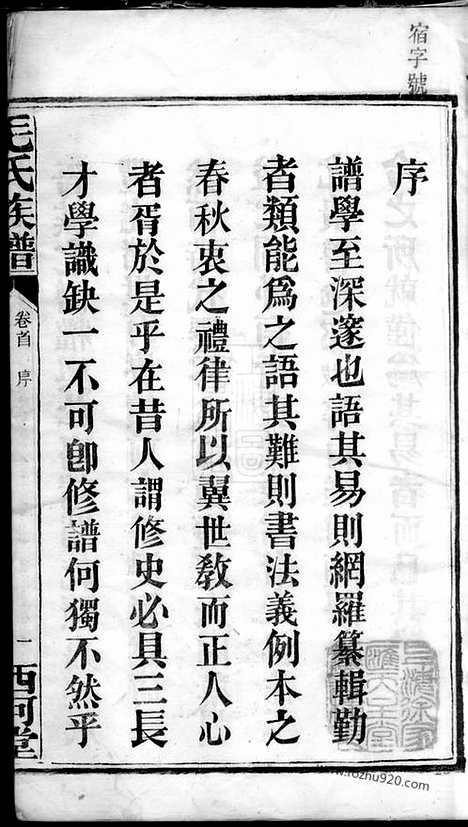 宿字號
序
譜學至深邃也語其易則網羅纂輯勤
者類能爲之語其難則書法義例本之
春秋衷之禮律所以翼世敎而正人心
者胥於是乎在昔人謂修史必具三長
才學識缺一不可卽修譜何獨不然乎
毛氏族譜
卷首
序
一
西河堂
www.rozhu920.com